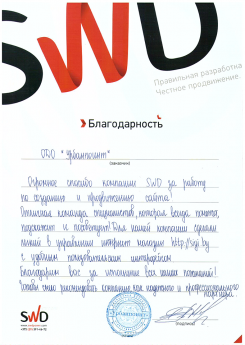 SWD
Правильная разработка
Честное продвижение
Благодарность
ООО "Урбанпоинт"
(заведение)
Огромное спасибо компании SWD за работу
по созданию и продвижению сайта
Отличная команда специалистов, которая всегда помогает,
подскажет и посоветует! Для нашей компании сделали
в управлении интернет магазин http://
с удобным пользовательским интерфейсом
Благодарим вас за исполнение всех наших пожеланий!
рекомендовать компанию, как надежного и профессионального
партнера
SWD
(подпись)